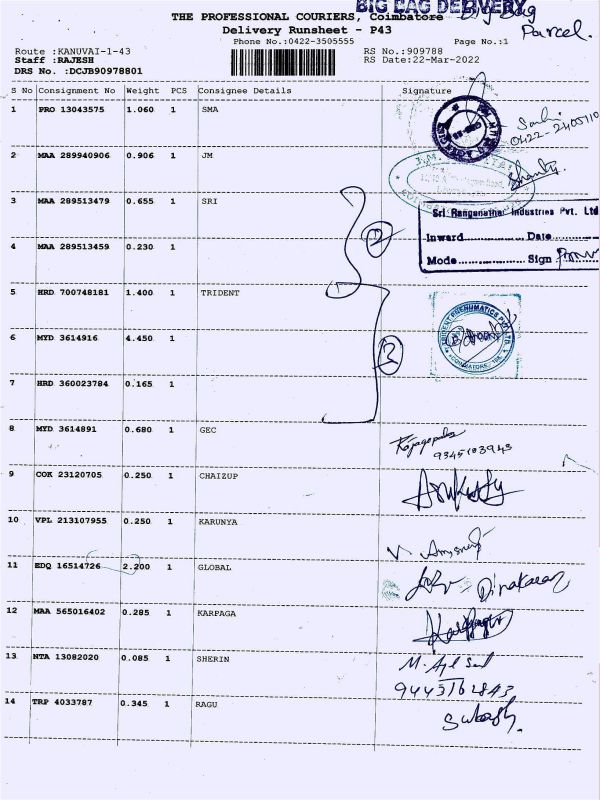 BIG BAG DELIVERY
Big Bag
Parcel.
THE PROFESSIONAL COURIERS, Coimbatore
Delivery Runsheet - P43
Phone No.:0422-3505555 Page No.:1
Route :KANUVAI-1-43 RS No.:909788
Staff :RAJESH RS Date:22-Mar-2022
DRS No. :DCJB90978801
S No Consignment No Weight PCS Consignee Details Signature
1 PRO 13043575 1.060 1 SMA
2 MAA 289940906 0.906 1 JM
3 MAA 289513479 0.655 1 SRI
Sri Ranganathar Industries Pvt. Ltd
Inward Date
4 MAA 289513459 0.230 1 2
Mode Sign
5 HRD 700748181 1.400 1 TRIDENT
TRIDENT PNEUMATICS PVT LTD.
6 MYD 3614916 4.450 1 3
7 HRD 360023784 0.165 1
8 MYD 3614891 0.680 1 GEC Rajagopalan
9345103943
9 COK 23120705 0.250 1 CHAIZUP
10 VPL 213107955 0.250 1 KARUNYA
11 EDQ 16514726 2.200 1 GLOBAL Dinakaran
12 MAA 565016402 0.285 1 KARPAGA
13 NTA 13082020 0.085 1 SHERIN
9443762843
14 TRP 4033787 0.345 1 RAGU